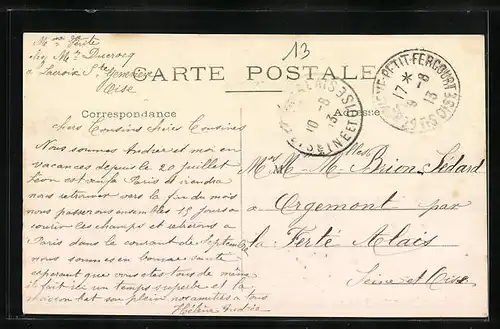 13
Mme Verte
chez Mr Ducrocq
à Lacroix Ste Geneviève
Oise
CARTE POSTALE
Correspondance
Adresse
17 * 8-8
13
SEINE ET OISE
10 -8
13
SEINE ET OISE
chers Cousins chères Cousines
Nous sommes André et moi en
vacances depuis le 20 juillet
Léon est à Paris et viendra
nous retrouver vers la fin du mois
nous passerons ensembles 15 jours à
courir les champs et
Paris dans le courant de Septembre
nous sommes en bonne santé
esperant que vous êtes tous de même
il fait de un temps superbe et la
moisson bat son plein nos amitiés à tous
Hélène André
M M Brion Sédard
à Orgemont par
la Ferté Alais
Seine et Oise